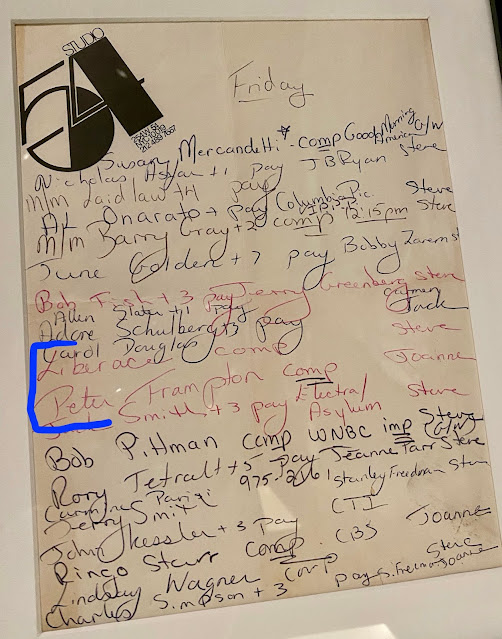 STUDIO
54
Friday
Susan Mercandetti * comp Good Morning America G/W
Nicholas +1 pay JB Ryan Steve
M/m Laidlaw +4 pay
Al Onarato + pay Columbia Pic. Steve
M/m Barry Gray +2 comp 12:15pm Steve
June Golden + 7 pay Bobby Zarem St
Bob Fish + 3 pay Jerry Greenberg Steve
Allen Slater +1 pay Carmen
Adore Schulberg +3 pay Jack
Carol Douglas Steve
Liberace comp Joanne
Peter Frampton comp
Smith + 3 pay Electra/Asylum Steve
Bob Pittman comp WNBC imp Steve (G/W)
Rory Tetralt +5 pay Jeanne Tarr Steve
Carmine Parisi 975- Stanley Freedman Steve
Jerry Smit
John Kessler + 3 pay CTI
Ringo Starr comp CBS Joanne
Lindsay Wagner comp Steve
Charles Simpson + 3 pay S. Freeman Joanne